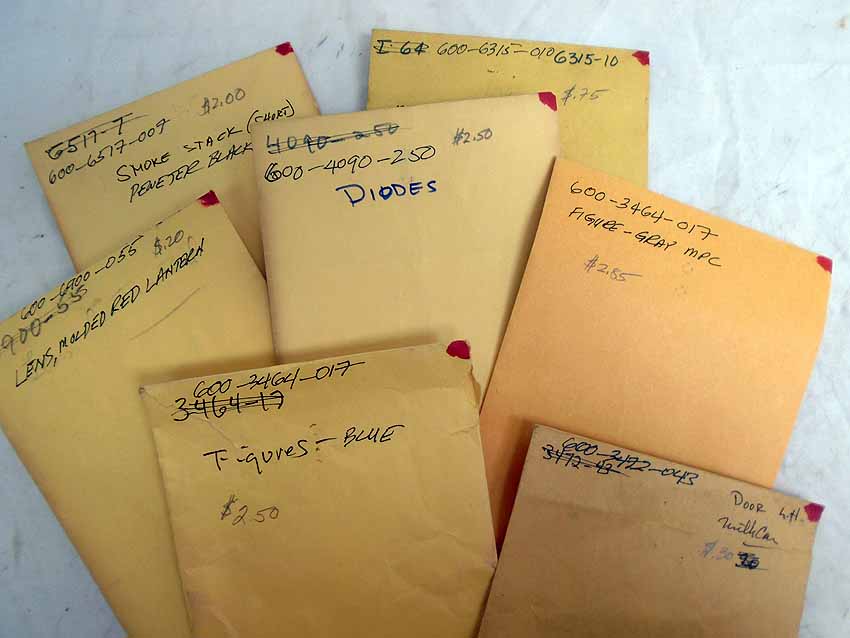 6517-7
600-6517-007
$2.00
SMOKE STACK (SHORT)
PENETER BLACK
I 64 600-6315-010 6315-10
$.75
4090-250
600-4090-250
$2.50
DIODES
600-3464-017
FIGURE-GRAY MPC
$2.85
600-6900-055
900-55
$.20
LENS, MOLDED RED LANTERN
600-3464-017
3464-17
Figures-BLUE
$2.50
600-3472-043
3472-43
DOOR L.H.
Milk Car
$.30